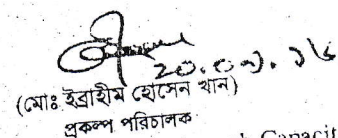 ২০.০৯.১৬
(মোঃ ইব্রাহীম হোসেন খান)
প্রকল্প পরিচালক
Capacit